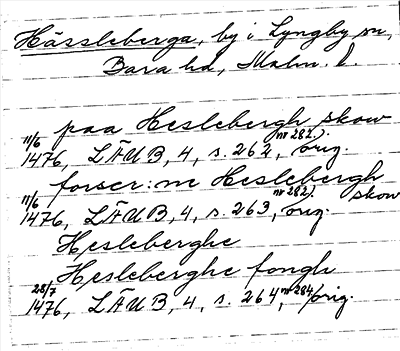 Hässleberga, by i Lyngby sn,
Bara hd, Malm. l.
paa Heslebergh skow
11/6 1476, LÄUB, 4, s. 262, nr 282). orig.
forscr:ne Heslebergh skow
11/6 1476, LÄUB, 4, s. 263, nr 282). orig.
Hesleberghe
Hesleberghe fongh
28/7 1476, LÄUB, 4, s. 264, nr 284, orig.